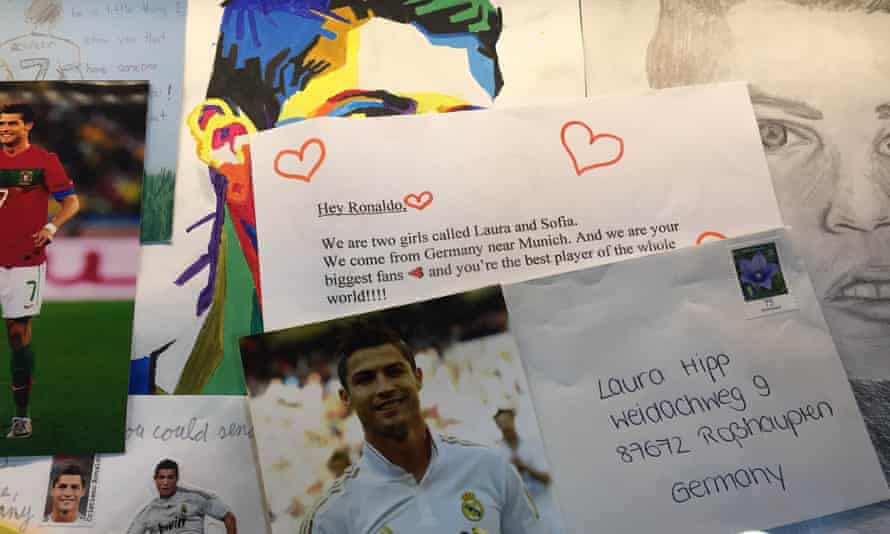 be a little thing I
show you that
have someone
7
7
Hey Ronaldo,
We are two girls called Laura and Sofia.
We come from Germany near Munich. And we are your
biggest fans and you're the best player of the whole
world!!!!
75
Laura Hipp
Weidachweg 9
87672 Roßhaupten
Germany
you could send
Cristiano Ronaldo
bwin